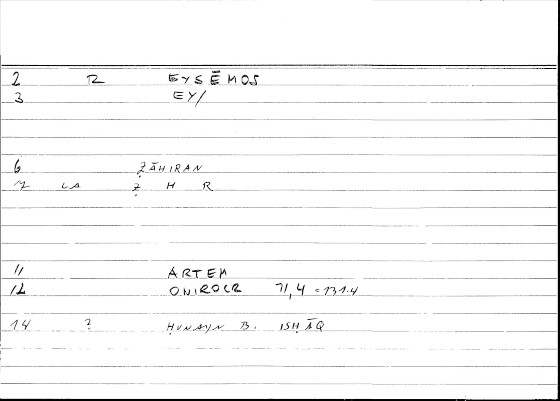 2 R EYSĒMOS
3 EY/
6 ẒĀHIRAN
7 LA Ẓ H R
11 ARTEM
12 ONIROCR 71,4 = 131.4
14 ? ḤUNAYN B. ISḤĀQ